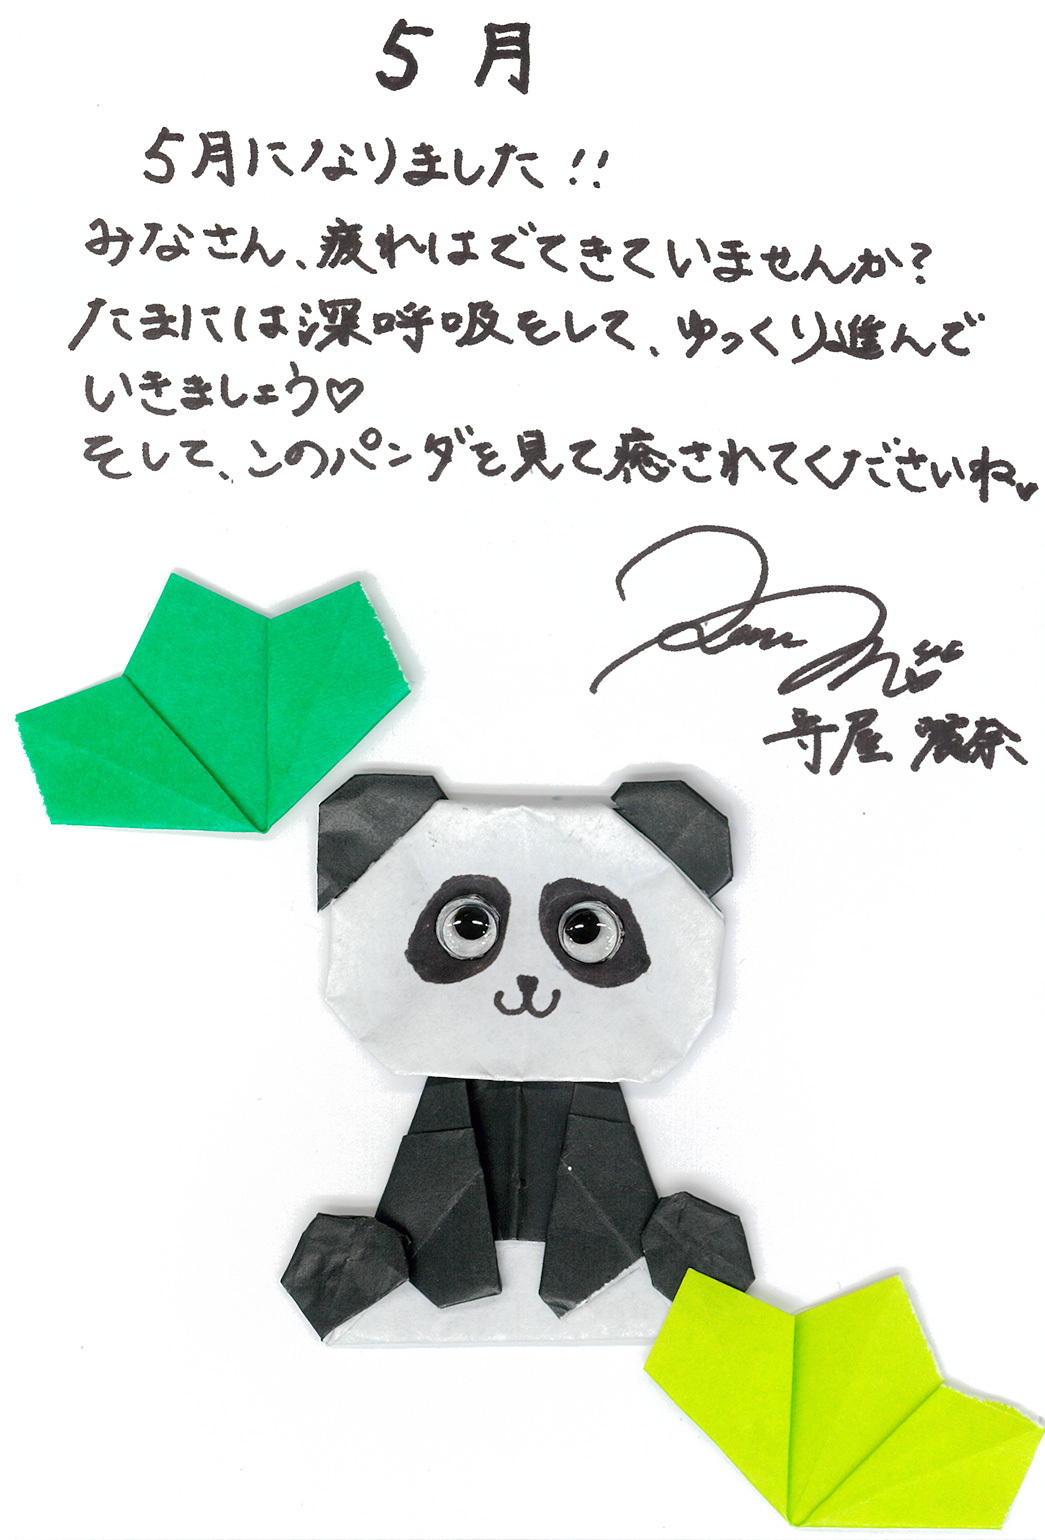 5月
5月になりました!!
みなさん、疲れはでてきていませんか?
たまには深呼吸をして、ゆっくり進んで
いきましょう♡
そして、このパンダを見て癒されてくださいね♥
守屋 麗奈